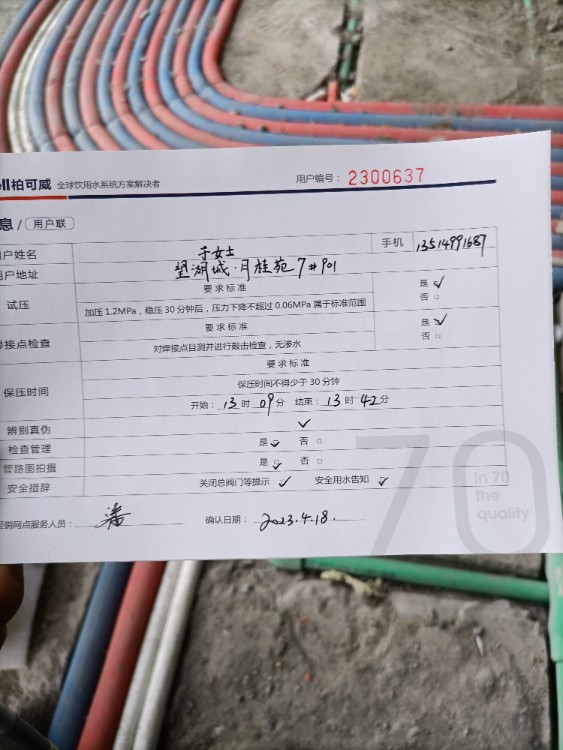 ell柏可威 全球饮用水系统方案解决者 用户编号： 2300637
息 / 用户联
户姓名 于女士 手机 13514991687
用户地址 望湖城·月桂苑7#901
试压 要求标准 是 ✓
加压 1.2MPa，稳压 30 分钟后，压力下降不超过 0.06MPa 属于标准范围 否 □
焊接点检查 要求标准 是 ✓
对焊接点目测并进行敲击检查，无渗水 否 □
保压时间 要求标准
保压时间不得少于 30 分钟
开始：13时09分 结束：13时42分
辨别真伪 ✓
检查管理 是 ✓ 否 □
管路图拍摄 是 ✓ 否 □
安全措辞 关闭总阀门等提示 ✓ 安全用水告知 ✓
经销网点服务人员： 潘 确认日期： 2023.4.18.
70
In 70
the
quality